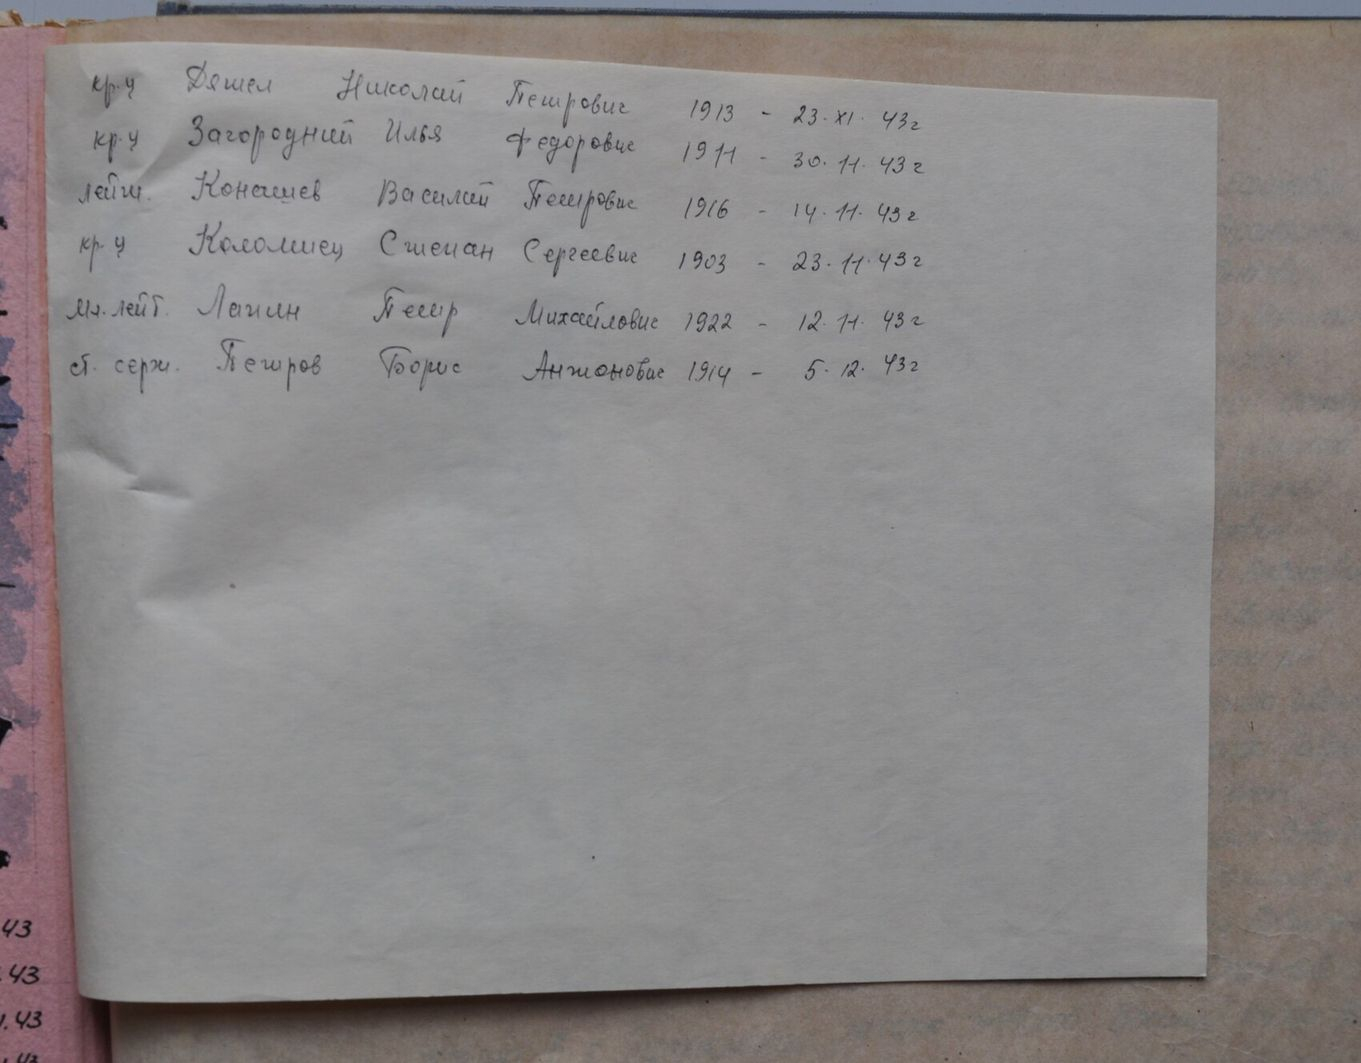 кр-ц Дяшел Николай Петрович 1913 - 23.XI. 43г
кр-ц Загородний Илья Федорович 1911 - 30.11.43г
лейт. Конашев Василий Петрович 1916 - 14.11.43г
кр-ц Коломиец Степан Сергеевич 1903 - 23.11.43г
мл.лейт. Лапин Петр Михайлович 1922 - 12.11.43г
ст. серж. Петров Борис Антонович 1914 - 5.12.43г
43
.43
.43